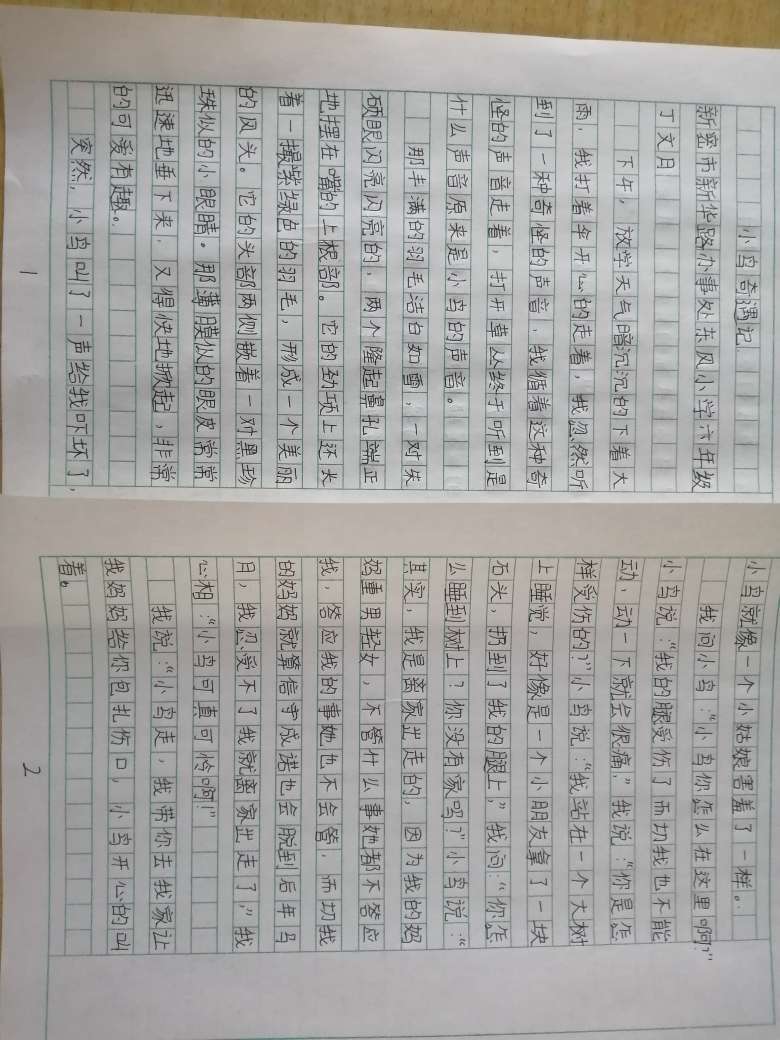 小鸟奇遇记
新密市新华路办事处东风小学六年级
丁文月
下午，放学天气暗沉沉的下着大
雨，我打着伞开心的走着，我忽然听
到了一种奇怪的声音，我循着这种奇
怪的声音走着，打开草丛终于听到是
什么声音原来是小鸟的声音。
那丰满的羽毛洁白如雪，一对朱
砂眼闪亮闪亮的，两个隆起鼻孔端正
地摆在嘴的上根部。它的劲项上还长
着一撮紫绿色的羽毛，形成一个美丽
的凤头。它的头部两侧嵌着一对黑珍
珠似的小眼睛。那薄膜似的眼皮常常
迅速地垂下来，又得快地掀起，非常
的可爱有趣。
突然，小鸟叫了一声给我吓坏了，
1
小鸟就像一个小姑娘害羞了一样。
我问小鸟：“小鸟你怎么在这里啊？”
小鸟说：“我的腿受伤了而切我也不能
动，动一下就会很痛，”我说：“你是怎
样受伤的？”小鸟说：“我站在一个大树
上睡觉，好像是一个小朋友拿了一块
石头，扔到了我的腿上，”我问：“你怎
么睡到树上？你没有家吗？”小鸟说：“
其实，我是离家出走的，因为我的妈
妈重男轻女，不管什么事她都不答应
我，答应我的事她也不会管，而切我
的妈妈就算信守成诺也会脱到后年马
月，我忍受不了我就离家出走了，”我
心相：“小鸟可真可怜啊！”
我说：“小鸟走，我带你去我家让
我妈妈给你包扎伤口，小鸟开心的叫
着。
2